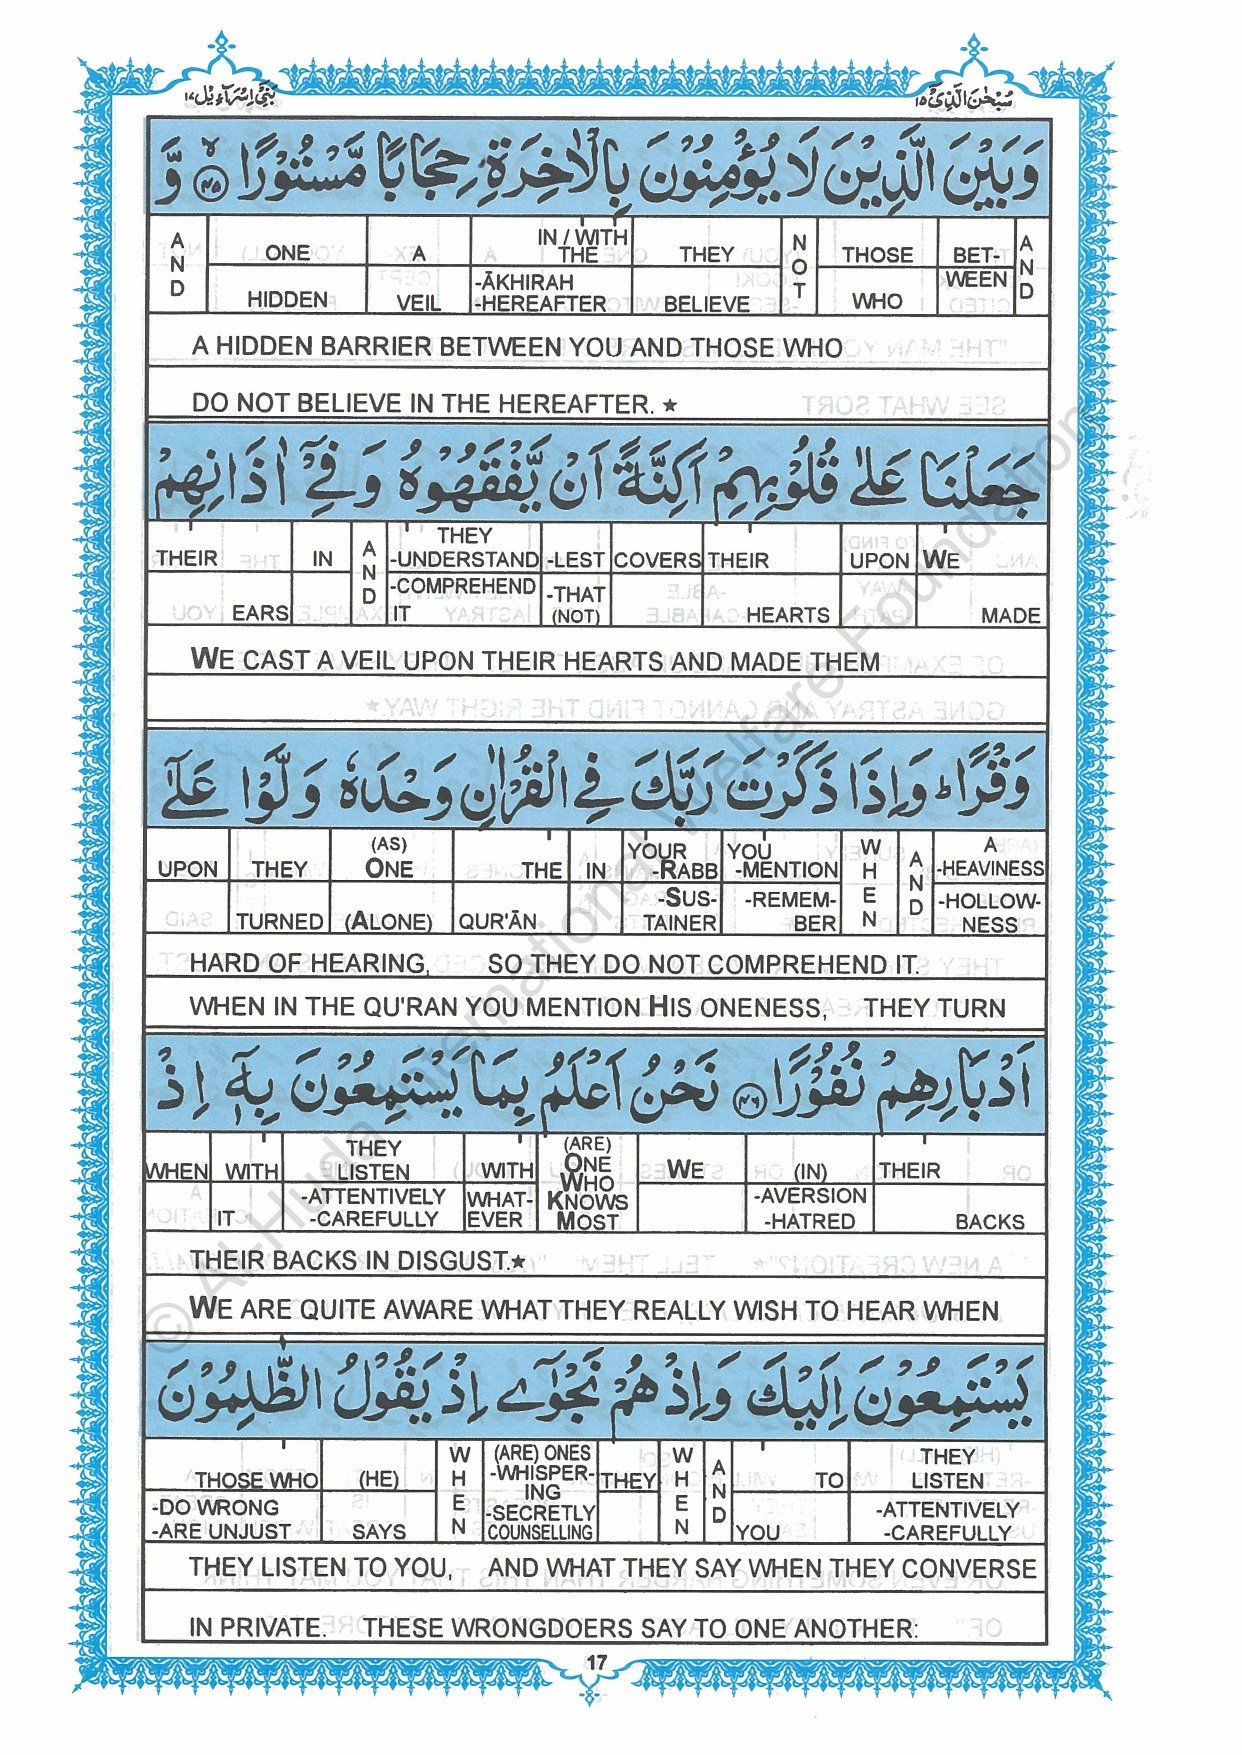 بَنِيْٓ اِسْرَآءِيْل ١٧
سُبْحٰنَ الَّذِيْٓ ١٥
وَبَيْنَ الَّذِيْنَ لَا يُؤْمِنُوْنَ بِالْاٰخِرَةِ حِجَابًا مَّسْتُوْرًا ﴿٤٥﴾ وَّ
AND ONE A IN / WITH THE THEY NOT THOSE BET- AND
HIDDEN VEIL -ĀKHIRAH -HEREAFTER BELIEVE WHO WEEN
A HIDDEN BARRIER BETWEEN YOU AND THOSE WHO
DO NOT BELIEVE IN THE HEREAFTER. ★
جَعَلْنَا عَلٰى قُلُوْبِهِمْ اَكِنَّةً اَنْ يَّفْقَهُوْهُ وَفِيْٓ اٰذَانِهِمْ
THEIR IN AND THEY -UNDERSTAND -LEST COVERS THEIR UPON WE
EARS -COMPREHEND IT -THAT (NOT) HEARTS MADE
WE CAST A VEIL UPON THEIR HEARTS AND MADE THEM
وَقْرًا ؕ وَاِذَا ذَكَرْتَ رَبَّكَ فِي الْقُرْاٰنِ وَحْدَهٗ وَلَّوْا عَلٰٓى
UPON THEY (AS) ONE THE IN YOUR -RABB YOU -MENTION WHEN AND A -HEAVINESS
TURNED (ALONE) QUR'ĀN -SUS- TAINER -REMEM- BER -HOLLOW- NESS
HARD OF HEARING, SO THEY DO NOT COMPREHEND IT.
WHEN IN THE QU'RAN YOU MENTION HIS ONENESS, THEY TURN
اَدْبَارِهِمْ نُفُوْرًا ﴿٤٦﴾ نَحْنُ اَعْلَمُ بِمَا يَسْتَمِعُوْنَ بِهٖٓ اِذْ
WHEN WITH THEY LISTEN WITH (ARE) ONE WHO KNOWS MOST WE (IN) THEIR
IT -ATTENTIVELY -CAREFULLY WHAT- EVER -AVERSION -HATRED BACKS
THEIR BACKS IN DISGUST.★
WE ARE QUITE AWARE WHAT THEY REALLY WISH TO HEAR WHEN
يَسْتَمِعُوْنَ اِلَيْكَ وَاِذْ هُمْ نَجْوٰٓى اِذْ يَقُوْلُ الظّٰلِمُوْنَ
THOSE WHO (HE) WHEN (ARE) ONES -WHISPER- ING -SECRETLY COUNSELLING THEY WHEN AND TO THEY LISTEN
-DO WRONG -ARE UNJUST SAYS YOU -ATTENTIVELY -CAREFULLY
THEY LISTEN TO YOU, AND WHAT THEY SAY WHEN THEY CONVERSE
IN PRIVATE. THESE WRONGDOERS SAY TO ONE ANOTHER:
17
© Al-Huda International Welfare Foundation